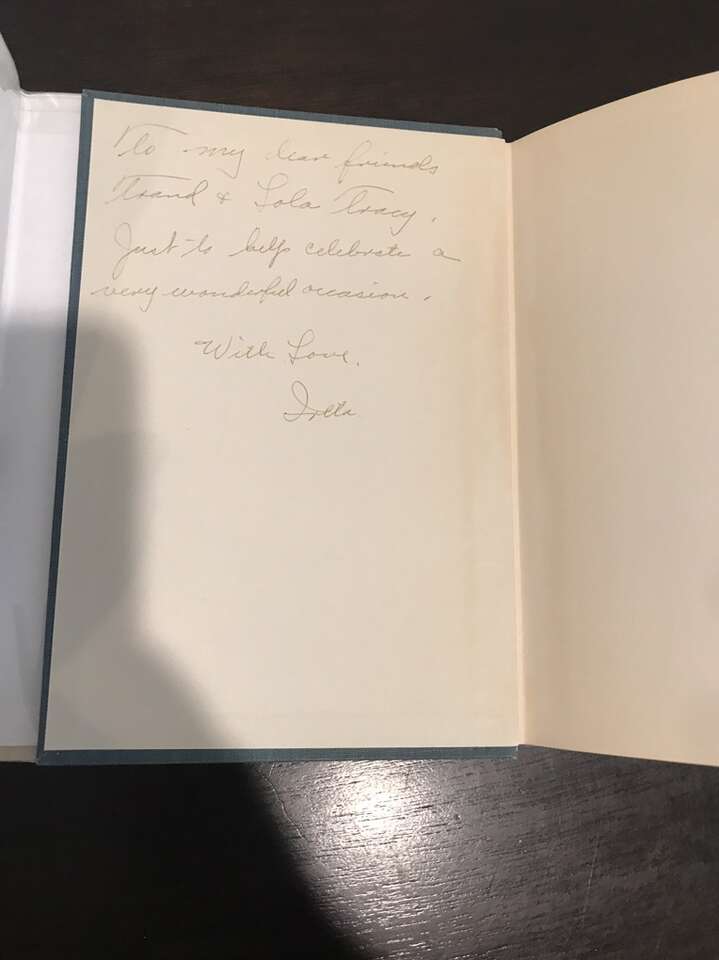 To my dear friends
& Lola Tracy.
Just to help celebrate a
very wonderful occasion.
With Love,